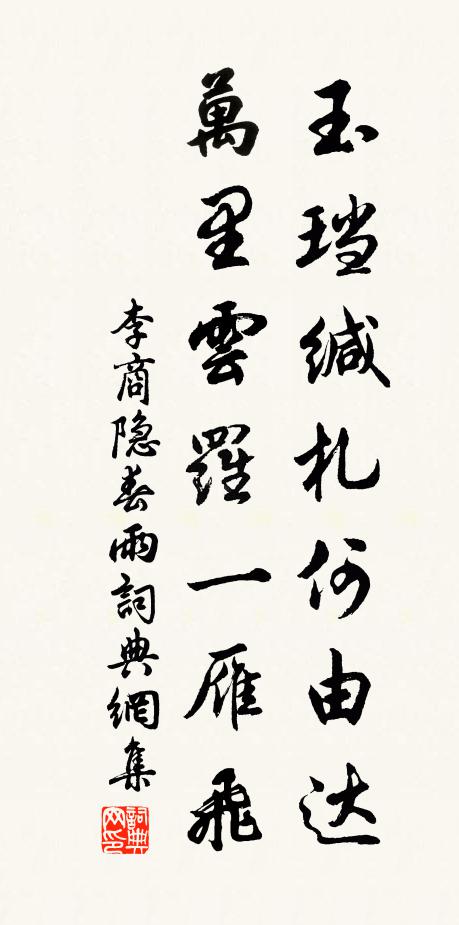 玉珰缄札何由达
萬里雲羅一雁飛
李商隐春雨詞典網集
詞典网印